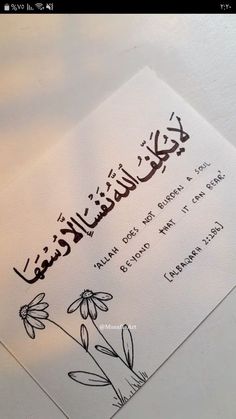 %٧٥ ٢:٢٠
لَا يُكَلِّفُ اللَّهُ نَفْسًا إِلَّا وُسْعَهَا
'ALLAH DOES NOT BURDEN A SOUL
BEYOND THAT IT CAN BEAR'
[ALBAQARH 2:286]